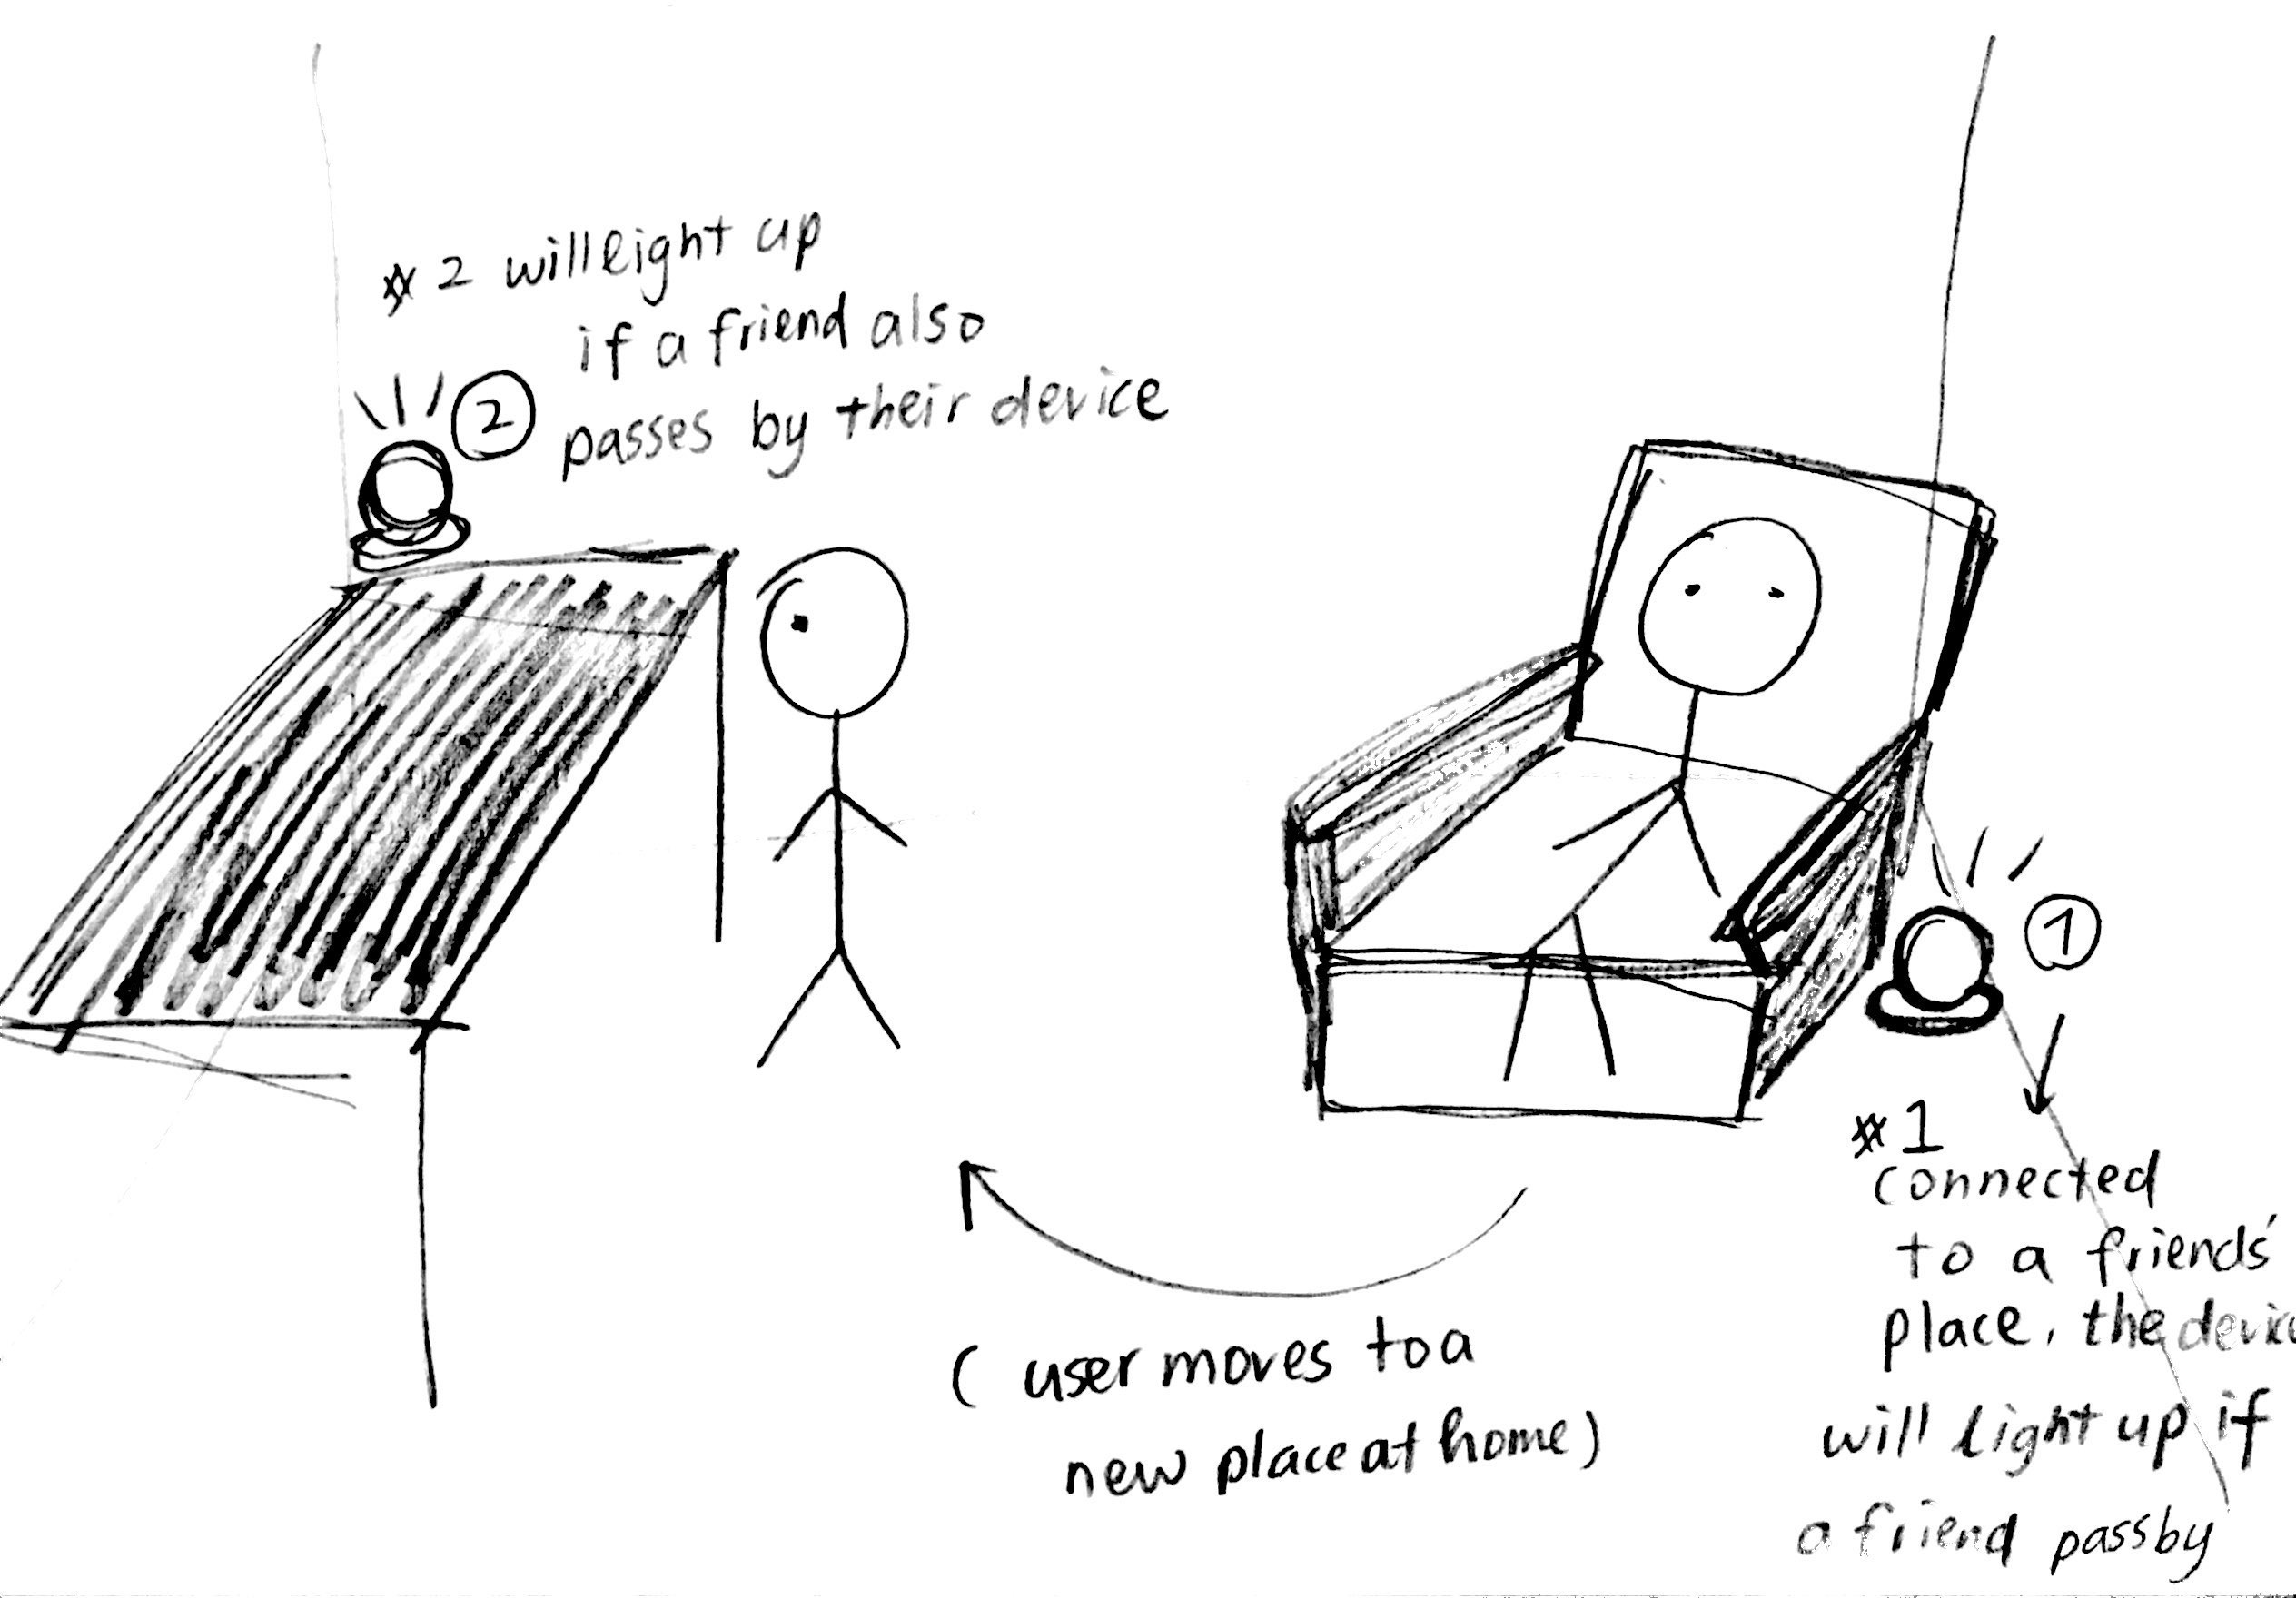 *2 will light up
if a friend also
passes by their device
2
1
*1
connected
to a friends'
place, the device
will light up if
a friend pass by
( user moves to a
new place at home)